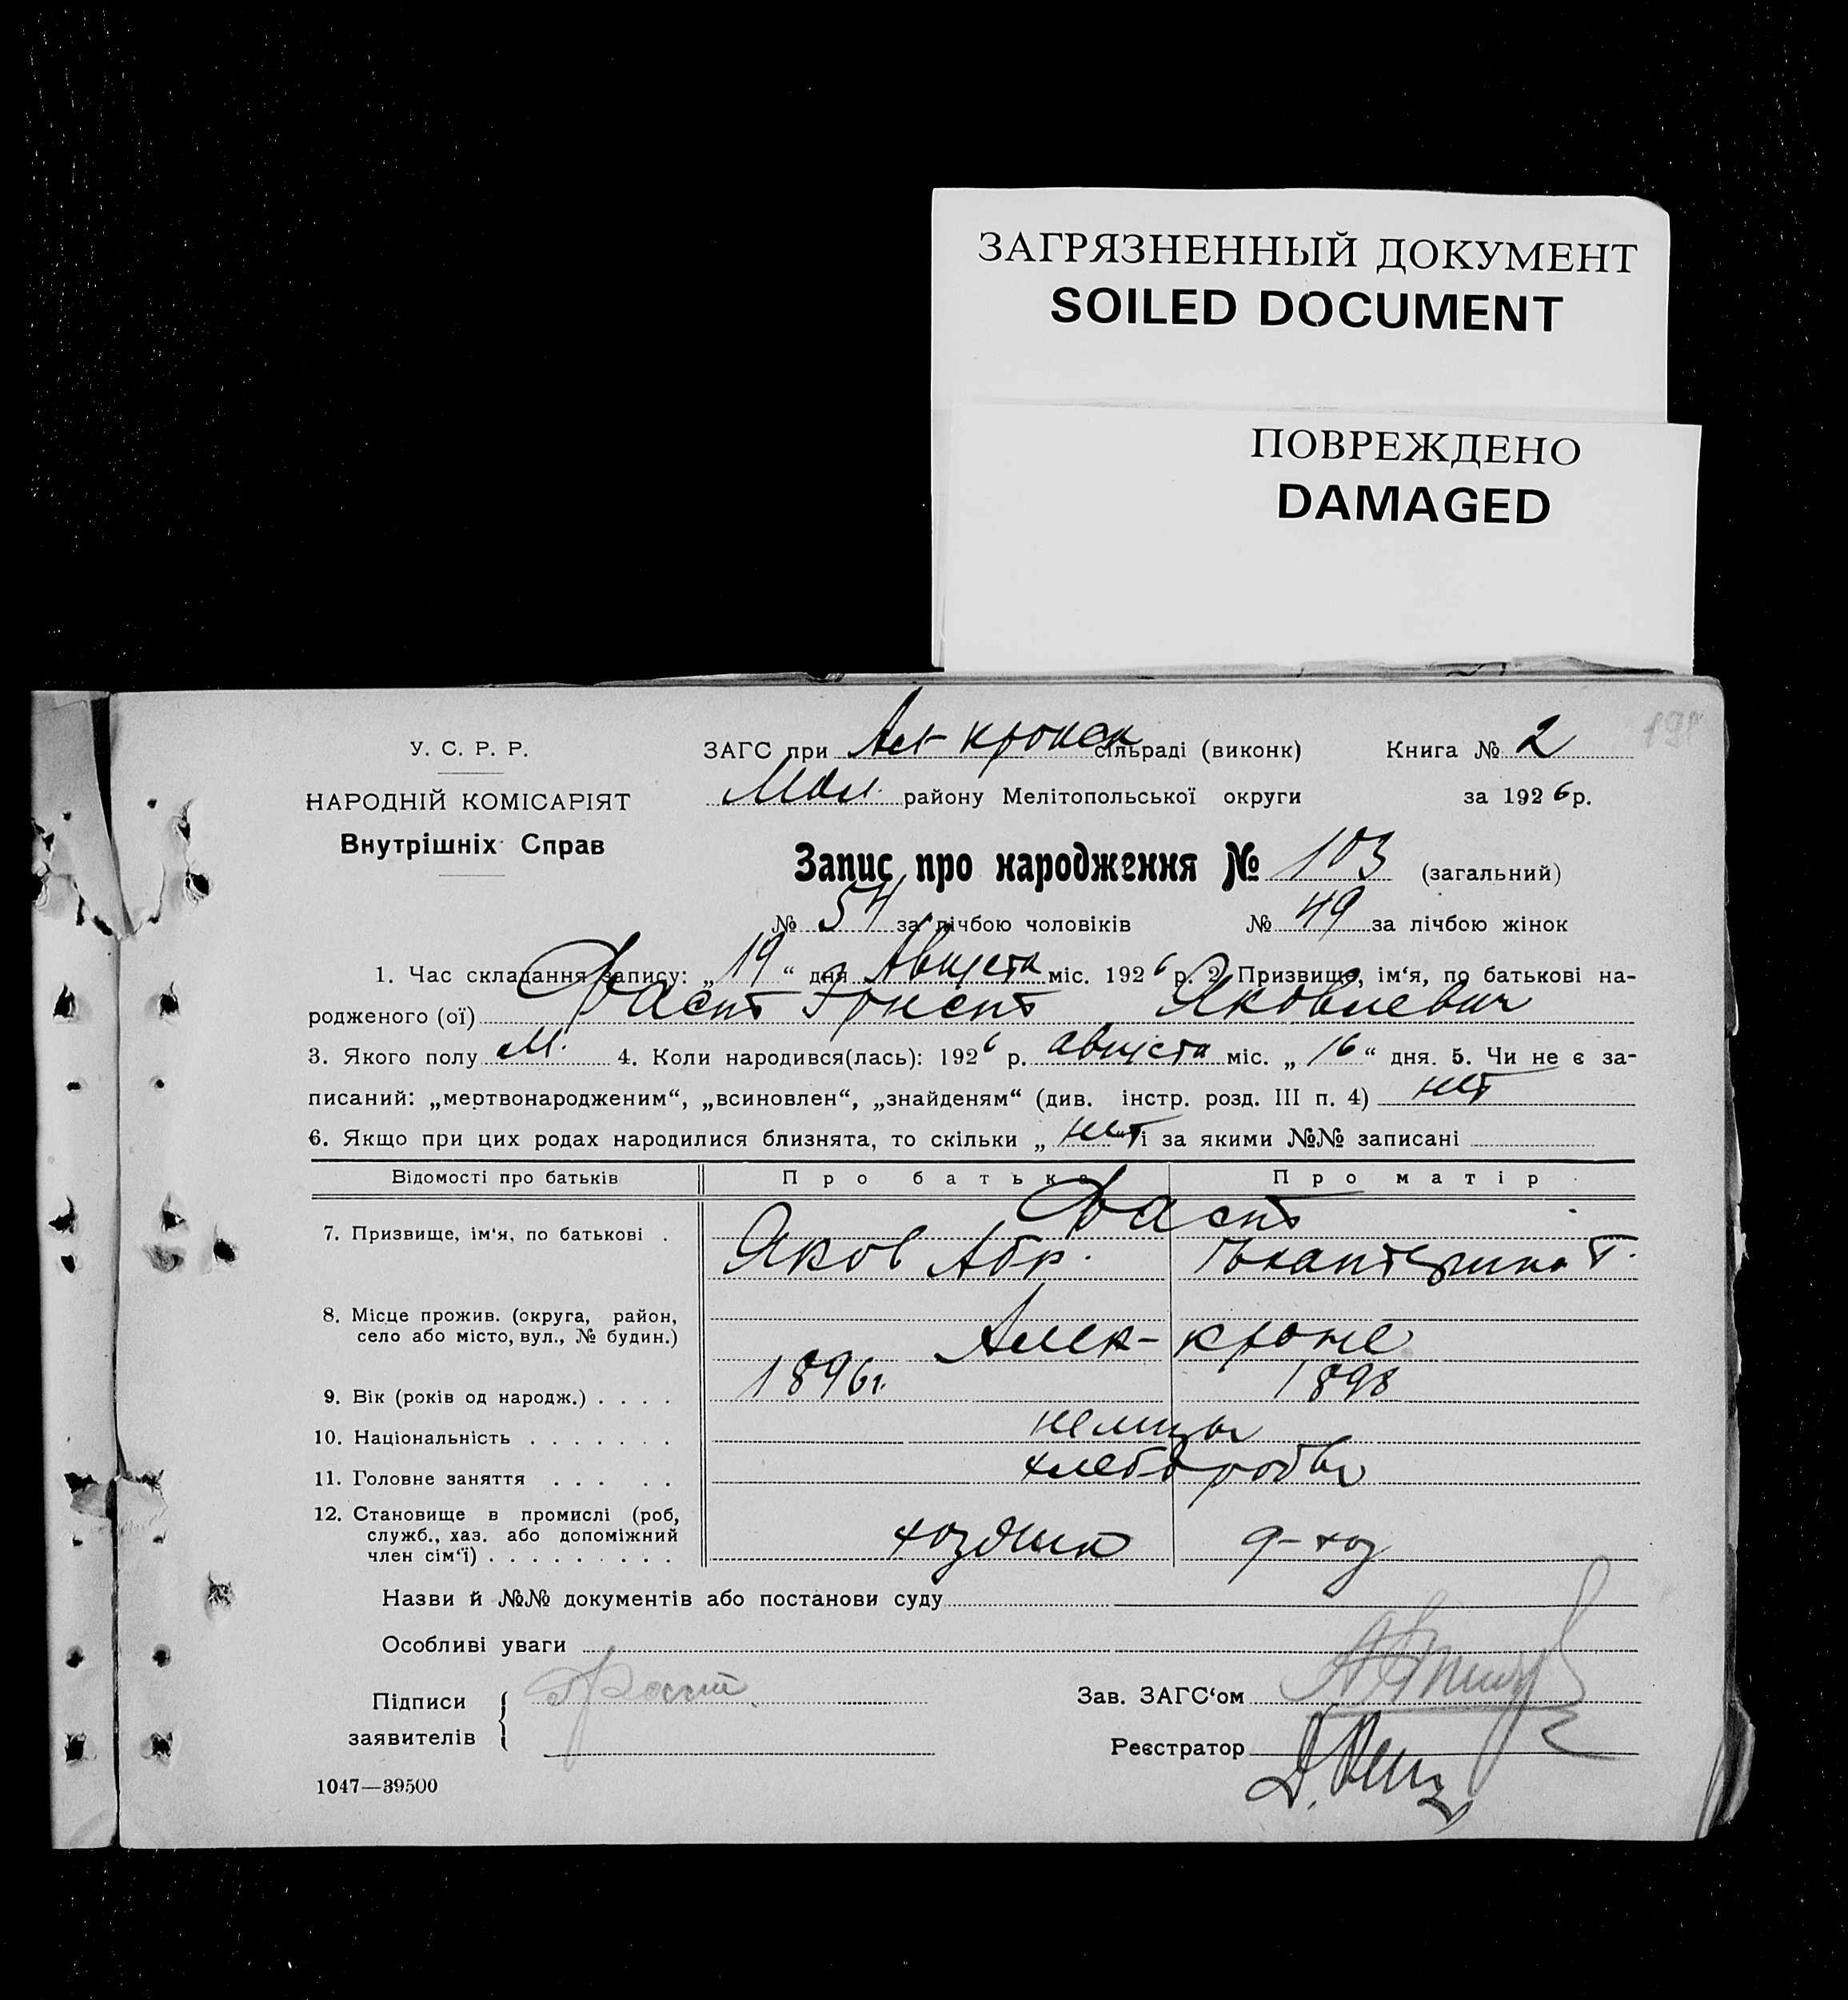 ЗАГРЯЗНЕННЫЙ ДОКУМЕНТ
SOILED DOCUMENT
ПОВРЕЖДЕНО
DAMAGED
У. С. Р. Р.
НАРОДНІЙ КОМІСАРІЯТ
Внутрішніх Справ
ЗАГС при Ал-Кронск сільраді (виконк) Книга № 2
Мол. району Мелітопольської округи за 1926 р.
Запис про народження № 103 (загальний)
№ 54 за лічбою чоловіків № 49 за лічбою жінок
1. Час складання запису: „19“ дня Августа міс. 1926 р. 2. Призвище, ім‘я, по батькові на-
родженого (ої) Фаст Эрнст Яковлевич
3. Якого полу М. 4. Коли народився(лась): 1926 р. августа міс. „16“ дня. 5. Чи не є за-
писаний: „мертвонародженим“, „всиновлен“, „знайденям“ (див. інстр. розд. III п. 4) нет
6. Якщо при цих родах народилися близнята, то скільки „нет“ і за якими №№ записані
Відомості про батьків Про батька Про матір
Фаст
7. Призвище, ім‘я, по батькові . Яков Абр. Екатерина Г.
8. Місце прожив. (округа, район,
село або місто, вул., № будин.) Алек-кроне
9. Вік (років од народж.) . . . . 1896г. 1898
10. Національність . . . . . . . немцы
11. Головне заняття . . . . . хлеборобы
12. Становище в промислі (роб,
служб., хаз. або допоміжний
член сім‘ї) . . . . . . . . . хозяин д-хоз
Назви й №№ документів або постанови суду
Особливі уваги
Підписи
заявителів
Зав. ЗАГС‘ом
Реєстратор
1047—39500